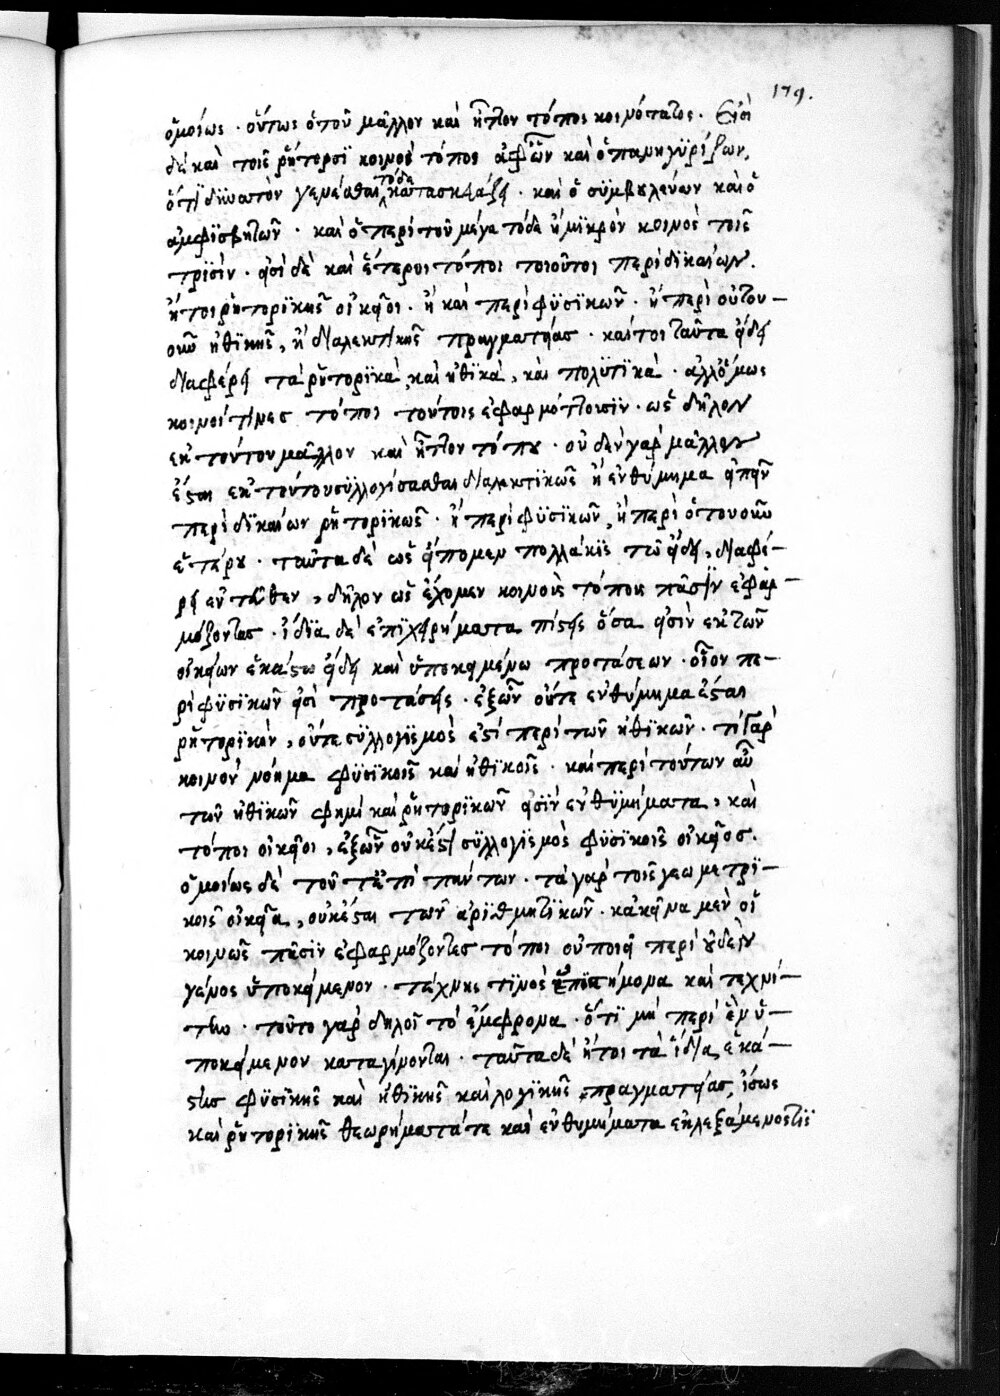 179.
ὁμοίως · οὕτως ὁ τοῦ μᾶλλον καὶ ἧττον τόπος κοινότατος · Εἰσὶ
δὲ καὶ τοῖς ῥήτορσι κοινοὶ τόποι ἀφ' ὧν καὶ ὁ πανηγυρίζων,
ὅτι δυνατὸν γενέσθαι τόδε κατασκευάζει · καὶ ὁ συμβουλεύων καὶ ὁ
ἀμφισβητῶν · καὶ ὁ περὶ τοῦ μέγα τόδε ἢ μικρὸν κοινὸς τοῖς
τρισίν · εἰσὶ δὲ καὶ ἕτεροι τόποι τοιοῦτοι περὶ δικαίων.
ἤτοι ῥητορικῆς οἰκεῖοι · ἢ καὶ περὶ φυσικῶν · ἢ περὶ οὑτου-
οῦν ἠθικῆς, ἢ διαλεκτικῆς πραγματείας · καίτοι ταῦτα εἴδει
διαφέρει τὰ ῥητορικὰ, καὶ ἠθικὰ, καὶ πολιτικά · ἀλλ' ὅμως
κοινοί τινες τόποι τούτοις ἐφαρμόττουσιν · ὡς δῆλον
ἐκ τούτου μᾶλλον καὶ ἧττον τόπου · οὐδὲν γὰρ μᾶλλον
ἔσται ἐκ τούτου συλλογίσασθαι διαλεκτικῶς ἢ ἐνθύμημα εἰπεῖν
περὶ δικαίων ῥητορικῶς · ἢ περὶ φυσικῶν, ἢ περὶ ὁτουοῦν
ἑτέρου · ταῦτα δὲ ὡς εἴπομεν πολλάκις τῷ εἴδει, διαφέ-
ρει ἐντεῦθεν, δῆλον ὡς ἔχομεν κοινοὺς τόπους πᾶσιν ἐφαρ-
μόζοντας · ἴδια δὲ ἐπιχειρήματα πίστεις ὅσα εἰσὶν ἐκ τῶν
οἰκείων ἑκάστῳ εἴδει καὶ ὑποκειμένῳ προτάσεων · οἷον πε-
ρὶ φυσικῶν εἰσὶ προτάσεις · ἐξ ὧν οὔτε ἐνθύμημα ἔσται
ῥητορικὸν, οὔτε συλλογισμὸς ἐστὶ περὶ τῶν ἠθικῶν · τί γὰρ
κοινὸν νόημα φυσικοῖς καὶ ἠθικοῖς · καὶ περὶ τούτων αὖ
τῶν ἠθικῶν φημὶ καὶ ῥητορικῶν εἰσὶν ἐνθυμήματα, καὶ
τόποι οἰκεῖοι, ἐξ ὧν οὐκ ἔστι συλλογισμὸς φυσικοῖς οἰκεῖος ·
ὁμοίως δὲ τοῦτ' ἐπὶ πάντων · τὰ γὰρ τοῖς γεωμετρι-
κοῖς οἰκεῖα, οὐκ ἔσται τῶν ἀριθμητικῶν · κἀκεῖνα μὲν οἱ
κοινῶς πᾶσιν ἐφαρμόζοντες τόποι οὐ ποιεῖ περὶ οὐδὲν
γένος ὑποκείμενον · τέχνης τινὸς ἐπιστήμονα καὶ τεχνί-
την · τοῦτο γὰρ δηλοῖ τὸ ἔμφρονα · ὅτι μὴ περὶ ἓν ὑ-
ποκείμενον καταγίνονται · ταῦτα δὲ ἤτοι τὰ ἴδια ἑκά-
στης φυσικῆς καὶ ἠθικῆς καὶ λογικῆς πραγματείας, ἴσως
καὶ ῥητορικῆς θεωρήματά τε καὶ ἐνθυμήματα ἐκλεξάμενος τις